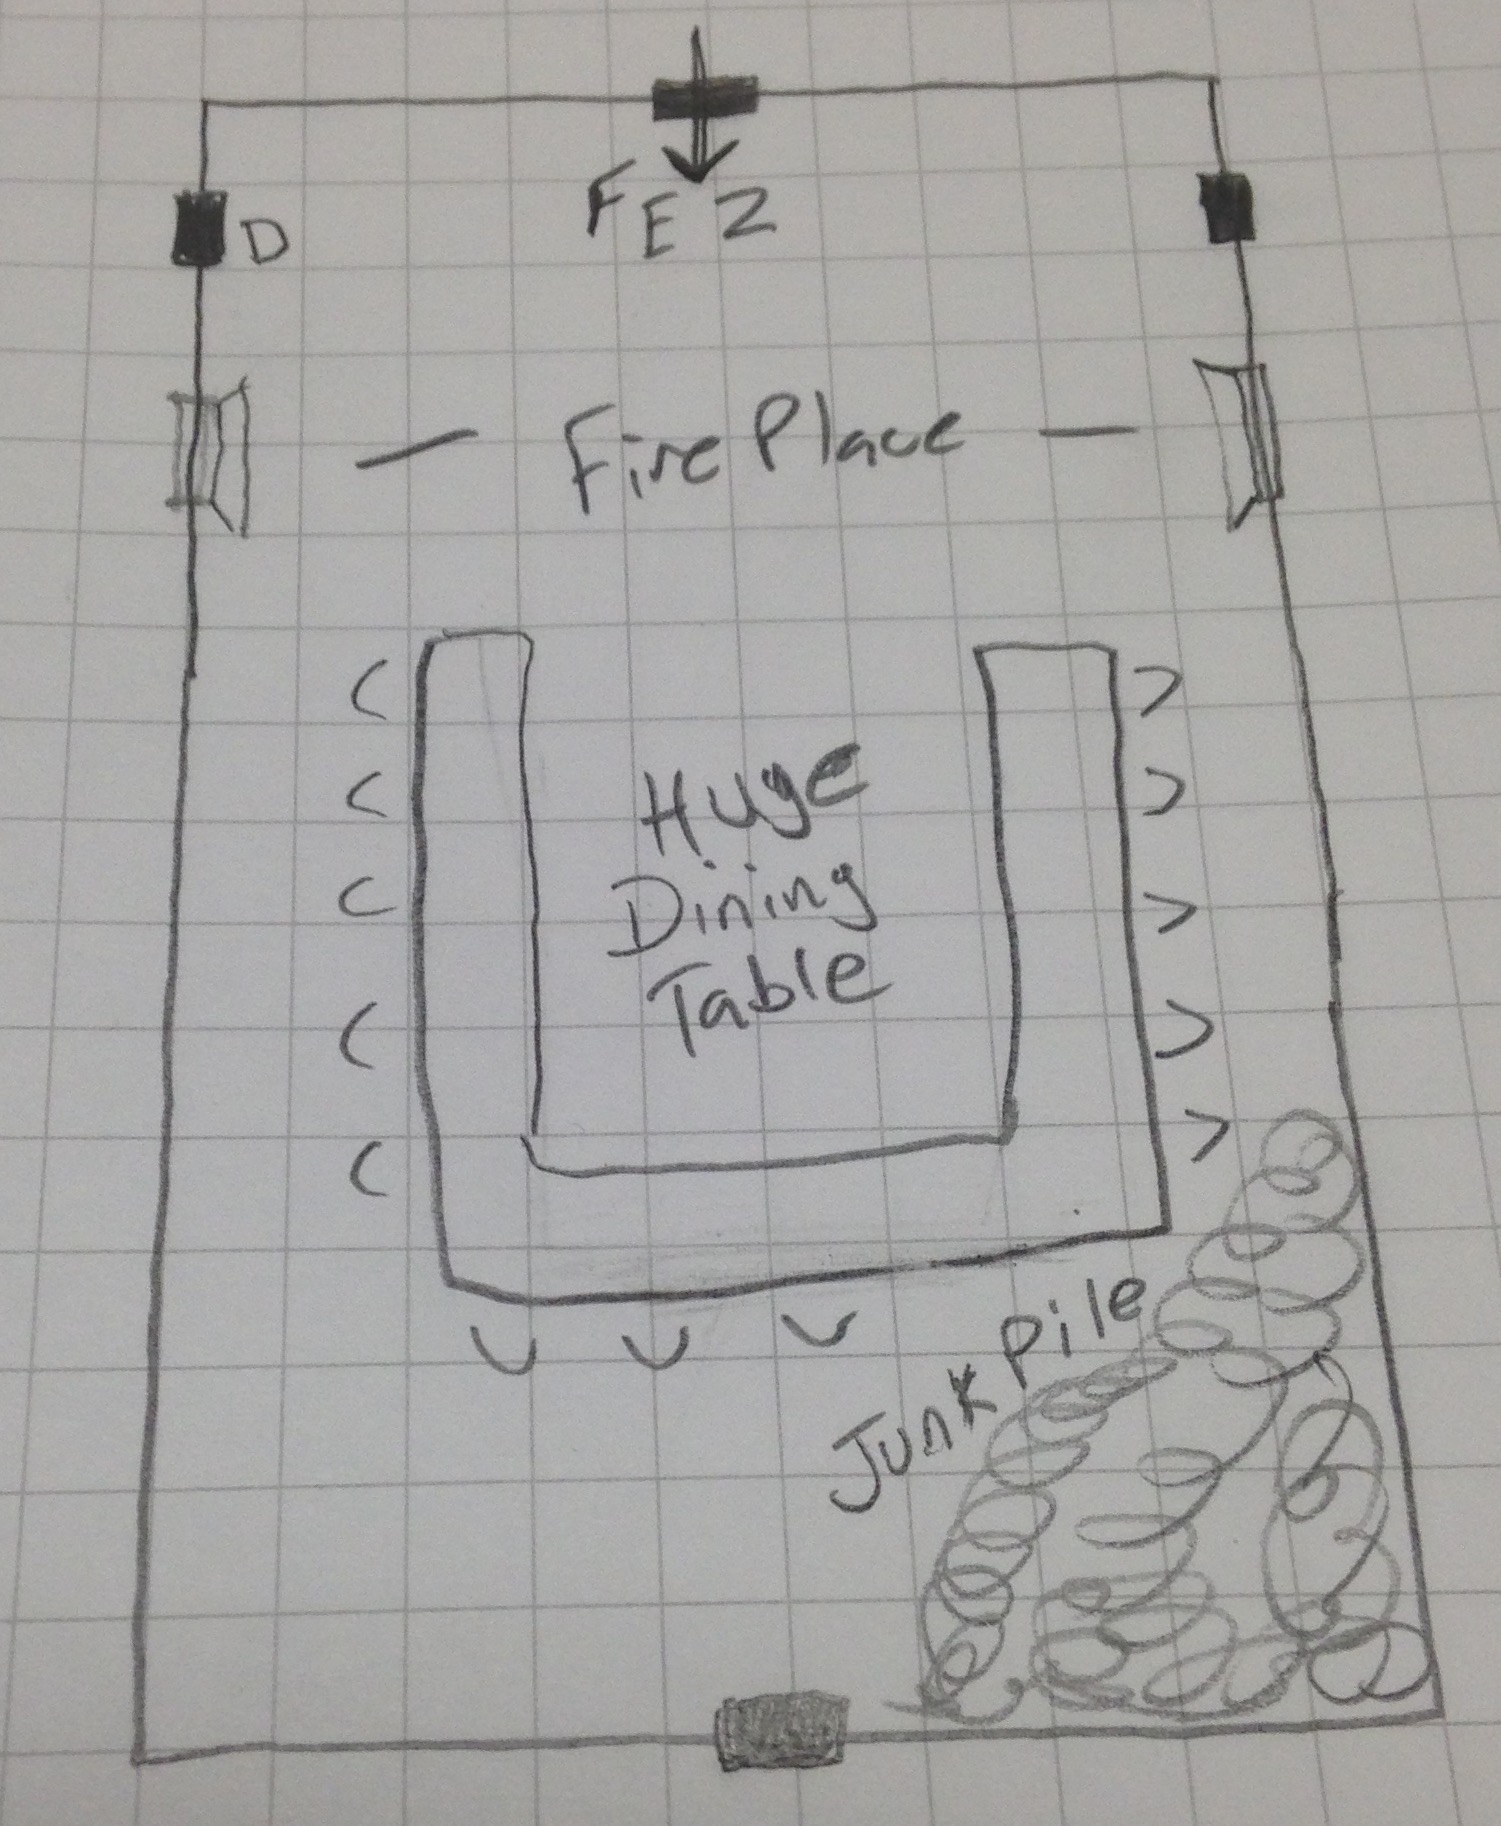 FE2
D
- Fire Place -
Huge
Dining
Table
Junk Pile